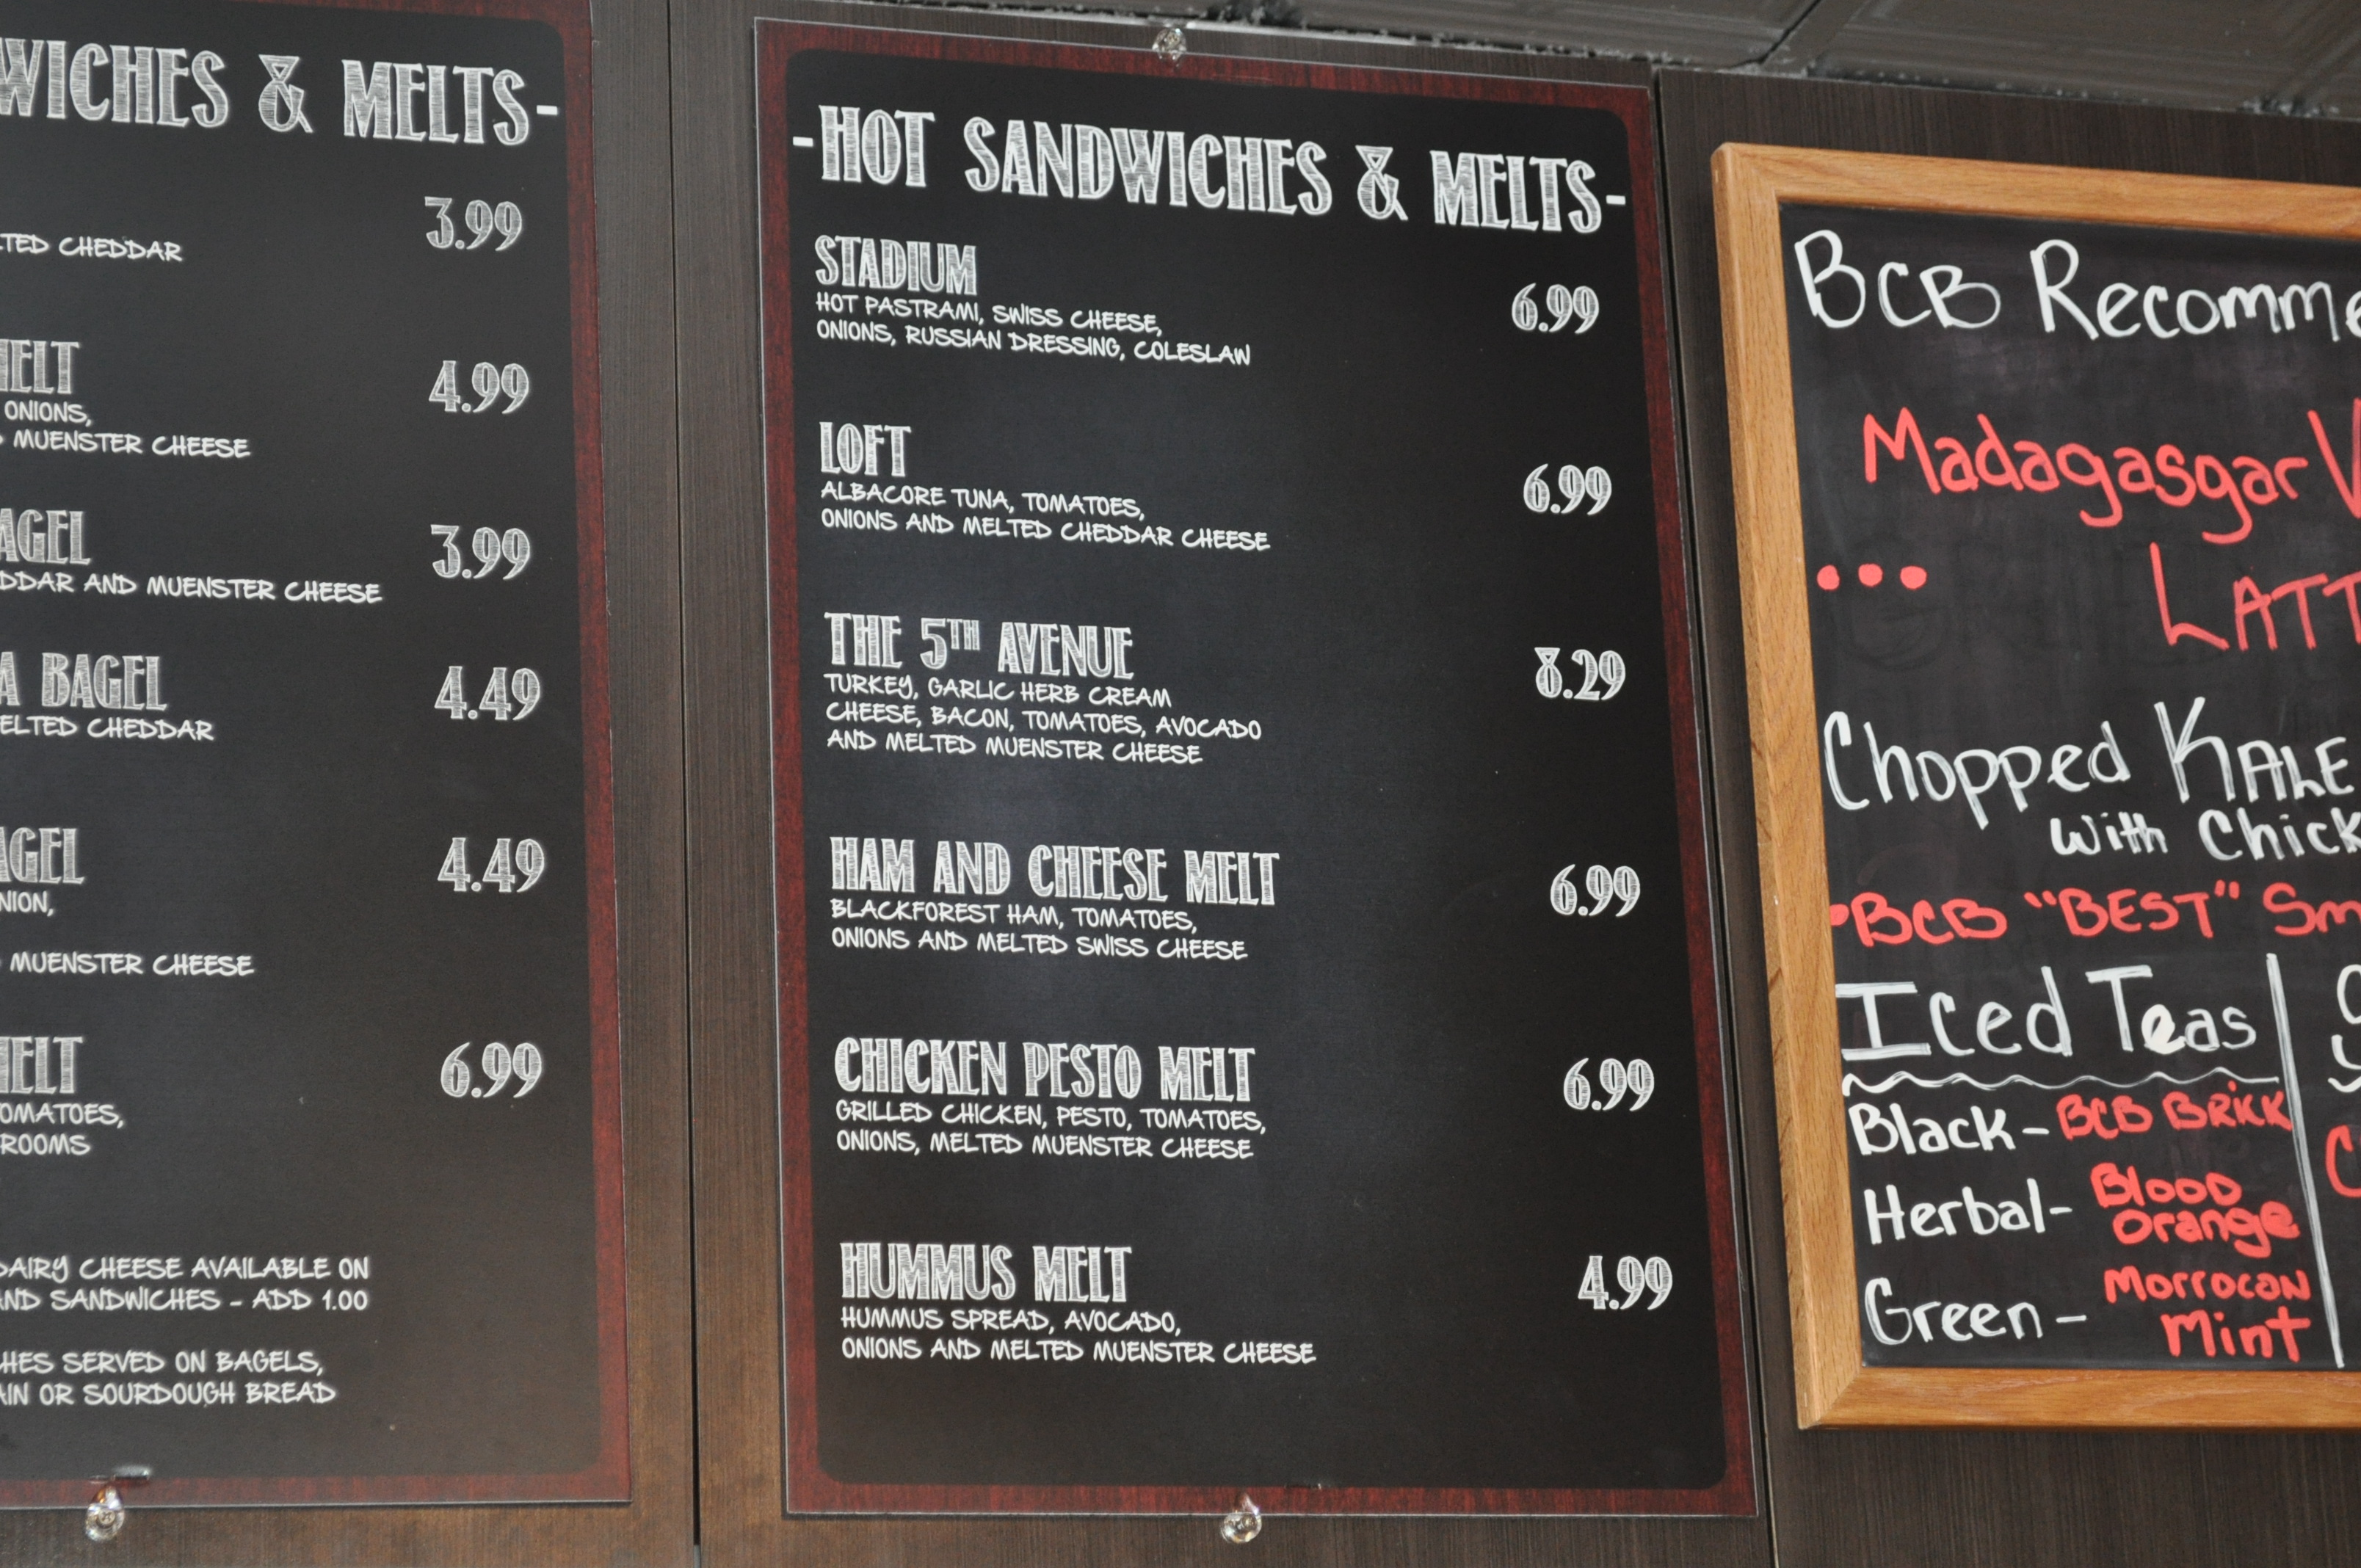 & MELTS-
3.99
CHEDDAR
4.99
ONIONS,
MUENSTER CHEESE
3.99
AND MUENSTER CHEESE
BAGEL
4.49
CHEDDAR
4.49
MUENSTER CHEESE
6.99
CHEESE AVAILABLE ON
SANDWICHES - ADD 1.00
SERVED ON BAGELS,
OR SOURDOUGH BREAD
-HOT SANDWICHES & MELTS-
STADIUM
6.99
HOT PASTRAMI, SWISS CHEESE,
ONIONS, RUSSIAN DRESSING, COLESLAW
LOFT
6.99
ALBACORE TUNA, TOMATOES,
ONIONS AND MELTED CHEDDAR CHEESE
THE 5TH AVENUE
8.29
TURKEY, GARLIC HERB CREAM
CHEESE, BACON, TOMATOES, AVOCADO
AND MELTED MUENSTER CHEESE
HAM AND CHEESE MELT
6.99
BLACKFOREST HAM, TOMATOES,
ONIONS AND MELTED SWISS CHEESE
CHICKEN PESTO MELT
6.99
GRILLED CHICKEN, PESTO, TOMATOES,
ONIONS, MELTED MUENSTER CHEESE
HUMMUS MELT
4.99
HUMMUS SPREAD, AVOCADO,
ONIONS AND MELTED MUENSTER CHEESE
BCB
Madagasgar
...
Chopped KALE
with
•BCB "BEST"
Iced Teas
Black - BCB BRICK
Herbal - Blood
Orange
Green - Morrocan
Mint